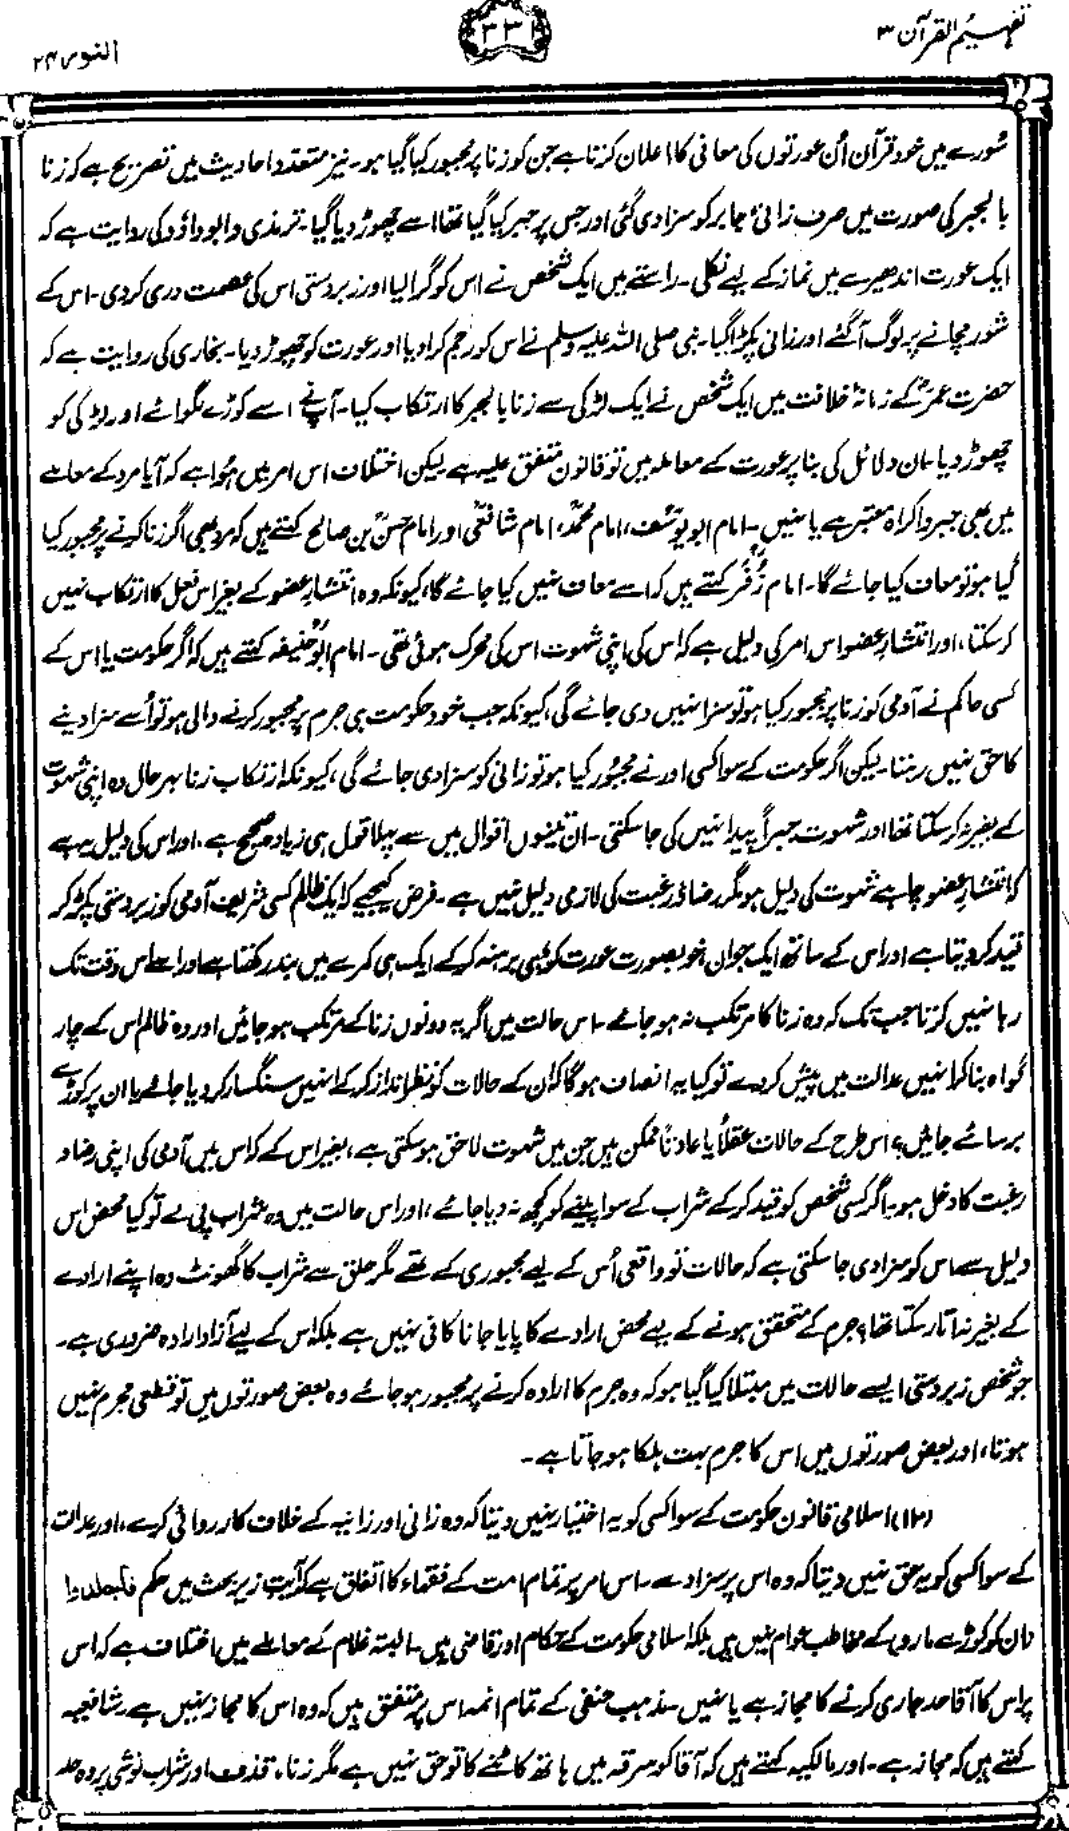 تفہیم القرآن ۳
۳۳۱
النور ۲۴
سُورے میں خود قرآن اُن عورتوں کی معافی کا اعلان کرتا ہے جن کو زنا پر مجبور کیا گیا ہو۔ نیز متعدد احادیث میں تصریح ہے کہ زنا
بالجبر کی صورت میں صرف زانیٔ جابر کو سزا دی گئی اور جس پر جبر کیا گیا تھا اسے چھوڑ دیا گیا۔ ترمذی و ابوداؤد کی روایت ہے کہ
ایک عورت اندھیرے میں نماز کے لیے نکلی۔ راستے میں ایک شخص نے اس کو گرا لیا اور زبردستی اس کی عصمت دری کر دی۔ اس کے
شور مچانے پر لوگ آ گئے اور زانی پکڑا گیا۔ نبی صلی اللہ علیہ وسلم نے اس کو رجم کرا دیا اور عورت کو چھوڑ دیا۔ بخاری کی روایت ہے کہ
حضرت عمرؓ کے زمانۂ خلافت میں ایک شخص نے ایک لڑکی سے زنا بالجبر کا ارتکاب کیا۔ آپ نے اسے کوڑے لگوائے اور لڑکی کو
چھوڑ دیا۔ ان دلائل کی بنا پر عورت کے معاملہ میں تو قانون متفق علیہ ہے لیکن اختلاف اس امر میں ہُوا ہے کہ آیا مرد کے معاملے
میں بھی جبر و اکراہ معتبر ہے یا نہیں۔ امام ابو یوسفؒ، امام محمدؒ، امام شافعیؒ اور امام حسنؒ بن صالح کہتے ہیں کہ مرد بھی اگر زنا کرنے پر مجبور کیا
گیا ہو تو معاف کیا جائے گا۔ امام زُفَرؒ کہتے ہیں کہ اسے معاف نہیں کیا جائے گا، کیونکہ وہ انتشارِ عضو کے بغیر اس فعل کا ارتکاب نہیں
کر سکتا، اور انتشارِ عضو اس امر کی دلیل ہے کہ اس کی اپنی شہوت اس کی محرک ہوئی تھی۔ امام ابوحنیفہؒ کہتے ہیں کہ اگر حکومت یا اس کے
کسی حاکم نے آدمی کو زنا پر مجبور کیا ہو تو سزا نہیں دی جائے گی، کیونکہ جب خود حکومت ہی جرم پر مجبور کرنے والی ہو تو اُسے سزا دینے
کا حق نہیں رہتا۔ لیکن اگر حکومت کے سوا کسی اور نے مجبُور کیا ہو تو زانی کو سزا دی جائے گی، کیونکہ ارتکاب زنا بہرحال وہ اپنی شہوت
کے بغیر نہ کر سکتا تھا اور شہوت جبراً پیدا نہیں کی جا سکتی۔ ان تینوں اقوال میں سے پہلا قول ہی زیادہ صحیح ہے، اور اس کی دلیل یہ ہے
کہ انتشارِ عضو چاہے شہوت کی دلیل ہو مگر رضا و رغبت کی لازمی دلیل نہیں ہے۔ فرض کیجیے کہ ایک ظالم کسی شریف آدمی کو زبردستی پکڑ کر
قید کر دیتا ہے اور اس کے ساتھ ایک جوان، خوبصورت عورت کو بھی برہنہ کر کے ایک ہی کمرے میں بند رکھتا ہے اور اسے اس وقت تک
رہا نہیں کرتا جب تک کہ وہ زنا کا مرتکب نہ ہو جائے۔ اس حالت میں اگر یہ دونوں زنا کے مرتکب ہو جائیں اور وہ ظالم اس کے چار
گواہ بنا کر انہیں عدالت میں پیش کر دے تو کیا یہ انصاف ہو گا کہ ان کے حالات کو نظر انداز کر کے انہیں سنگسار کر دیا جائے یا ان پر کوڑے
برسائے جائیں؟ اس طرح کے حالات عقلاً یا عادتاً ممکن ہیں جن میں شہوت لاحق ہو سکتی ہے، بغیر اس کے کہ اس میں آدمی کی اپنی رضا و
رغبت کا دخل ہو۔ اگر کسی شخص کو قید کر کے شراب کے سوا پینے کو کچھ نہ دیا جائے، اور اس حالت میں وہ شراب پی لے تو کیا محض اس
دلیل سے اس کو سزا دی جا سکتی ہے کہ حالات تو واقعی اُس کے لیے مجبوری کے تھے مگر حلق سے شراب کا گھونٹ وہ اپنے ارادے
کے بغیر نہ اتار سکتا تھا؟ جرم کے متحقق ہونے کے لیے محض ارادے کا پایا جانا کافی نہیں ہے بلکہ اس کے لیے آزاد ارادہ ضروری ہے۔
جو شخص زبردستی ایسے حالات میں مبتلا کیا گیا ہو کہ وہ جرم کا ارادہ کرنے پر مجبور ہو جائے وہ بعض صورتوں میں تو قطعی مجرم نہیں
ہوتا، اور بعض صورتوں میں اس کا جرم بہت ہلکا ہو جاتا ہے۔
(۱۲) اسلامی قانون حکومت کے سوا کسی کو یہ اختیار نہیں دیتا کہ وہ زانی اور زانیہ کے خلاف کارروائی کرے، اور عدالت
کے سوا کسی کو یہ حق نہیں دیتا کہ وہ اس پر سزا دے۔ اس امر پر تمام امت کے فقہاء کا اتفاق ہے کہ آیتِ زیر بحث میں حکم فَاجْلِدُوا
(ان کو کوڑے مارو) کے مخاطب عوام نہیں ہیں بلکہ اسلامی حکومت کے حکام اور قاضی ہیں۔ البتہ غلام کے معاملے میں اختلاف ہے کہ اس
پر اس کا آقا حد جاری کرنے کا مجاز ہے یا نہیں۔ مذہب حنفی کے تمام ائمہ اس پر متفق ہیں کہ وہ اس کا مجاز نہیں ہے۔ شافعیہ
کہتے ہیں کہ مجاز ہے۔ اور مالکیہ کہتے ہیں کہ آقا کو سرقہ میں ہاتھ کاٹنے کا تو حق نہیں ہے مگر زنا، قذف اور شراب نوشی پر وہ حد